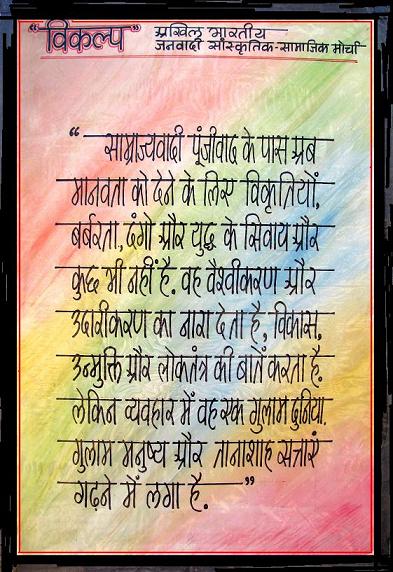 "विकल्प" अखिल भारतीय
जनवादी सांस्कृतिक-सामाजिक मोर्चा
" साम्राज्यवादी पूंजीवाद के पास अब
मानवता को देने के लिए विकृतियों,
बर्बरता, दंगो और युद्ध के सिवाय और
कुछ भी नहीं है. वह वैश्वीकरण और
उदारीकरण का नारा देता है, विकास,
उन्मुक्ति और लोकतंत्र की बातें करता है.
लेकिन व्यवहार में वह एक गुलाम दुनिया.
गुलाम मनुष्य और तानाशाह सत्ताएं
गढ़ने में लगा है. "